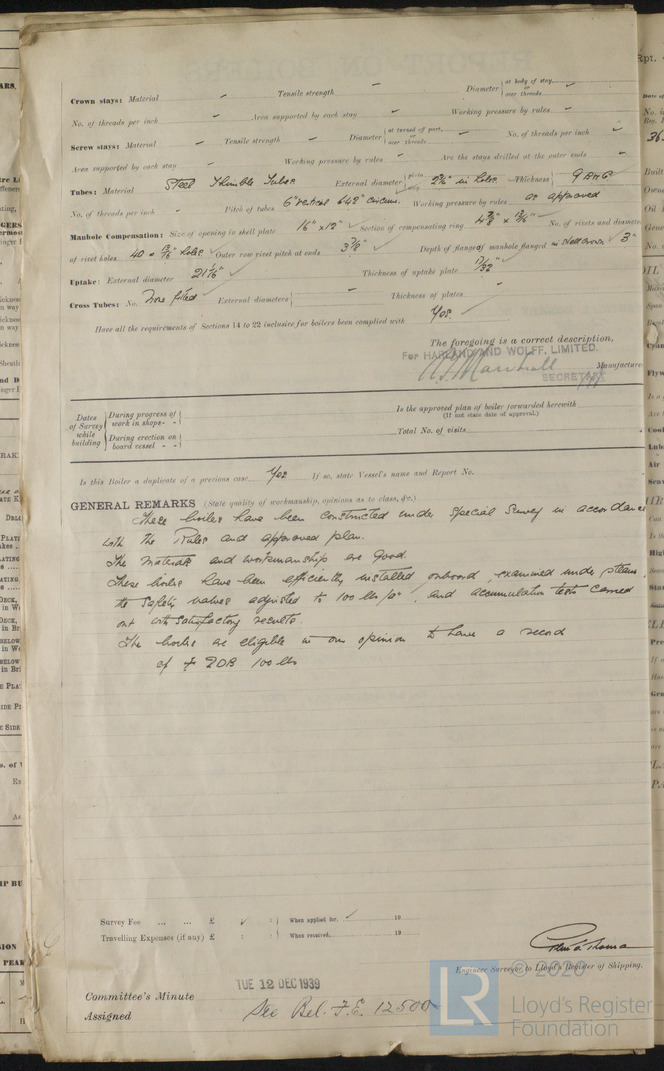 Crown stays: Material ✓ Tensile strength ✓ Diameter { at body of stay, or over threads. ✓
No. of threads per inch ✓ Area supported by each stay ✓ Working pressure by rules ✓
Screw stays: Material ✓ Tensile strength ✓ Diameter { at turned off part, or over threads. ✓ No. of threads per inch ✓
Area supported by each stay ✓ Working pressure by rules ✓ Are the stays drilled at the outer ends ✓
Tubes: Material Steel Thimble Tubes External diameter { plain 2⅞" in holes. Thickness 9 BWG
No. of threads per inch ✓ Pitch of tubes 6" vertical Working pressure by rules as approved
Manhole Compensation: Size of opening in shell plate 16" × 12" Section of compensating ring No. of rivets and diameter
of rivet holes 40 holes Outer row rivet pitch at ends 3⅞" Depth of flange if manhole flanged 3"
Uptake: External diameter Thickness of uptake plate 17/32"
Cross Tubes: No. None fitted External diameters { ✓ Thickness of plates ✓
Have all the requirements of Sections 14 to 22 inclusive for boilers been complied with Yes.
The foregoing is a correct description,
For HARLAND AND WOLFF, LIMITED.
Manufacture
SECRETARY
Dates of Survey while building { During progress of work in shops - - } Is the approved plan of boiler forwarded herewith
(If not state date of approval.)
{ During erection on board vessel - - } Total No. of visits
Is this Boiler a duplicate of a previous case Yes If so, state Vessel's name and Report No.
GENERAL REMARKS (State quality of workmanship, opinions as to class, &c.)
These boilers have been constructed under special survey in accordance
with the Rules and approved plan.
The materials and workmanship are good.
These boilers have been efficiently installed onboard, examined under steam
the safety valves adjusted to 100 lbs/□", and accumulation tests carried
out with satisfactory results.
The boilers are eligible in our opinion to have a record
of + 2DB 100 lbs
Survey Fee ... ... £ ✓ : : } When applied for, ✓ 19
Travelling Expenses (if any) £ : : } When received, 19
Engineer Surveyor to Lloyd's Register of Shipping.
TUE 12 DEC 1939
Committee's Minute
Assigned See Bel. F.E. 12500
© 2020
LR
Lloyd's Register
Foundation